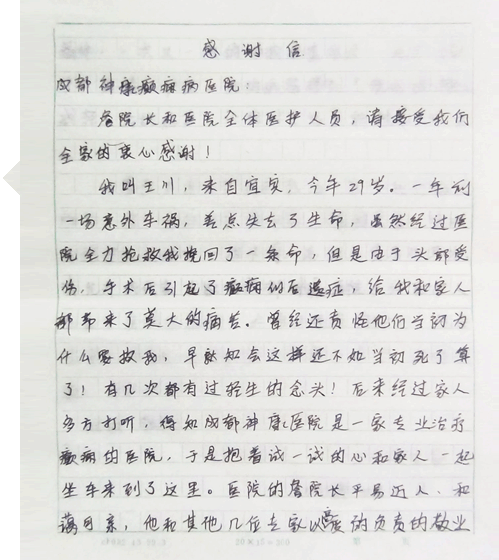 感谢信
成都神康癫痫病医院:
詹院长和医院全体医护人员,请接受我们
全家的衷心感谢!
我叫王川,来自宜宾,今年29岁。一年前
一场意外车祸,差点失去了生命,虽然经过医
院全力抢救我挽回了一条命,但是由于头部受
伤,手术后引起了癫痫的后遗症,给我和家人
都带来了莫大的痛苦。曾经还责怪他们当初为
什么要救我,早就知会这样还不如当初死了算
了!有几次都有过轻生的念头!后来经过家人
多方打听,得知成都神康医院是一家专业治疗
癫痫的医院,于是抱着试一试的心和家人一起
坐车来到了这里。医院的詹院长平易近人,和
蔼可亲,他和其他几位专家以的负责的敬业